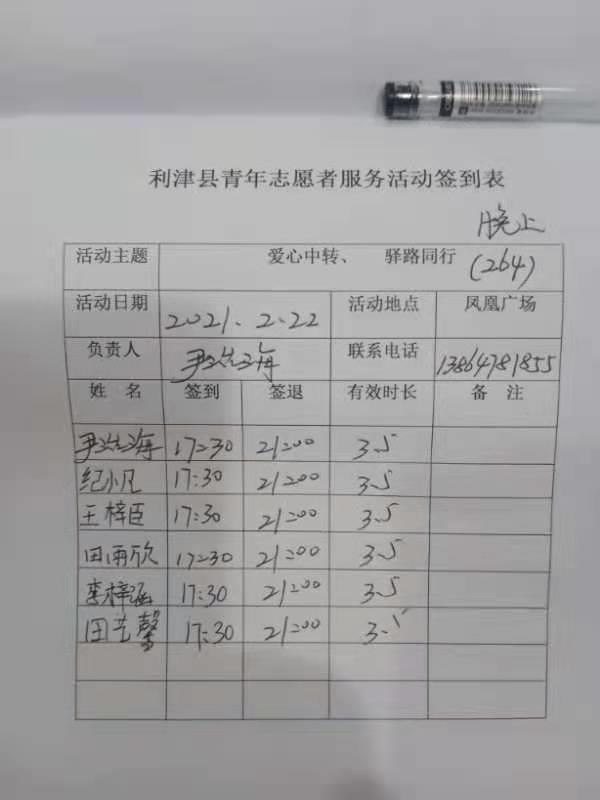 利津县青年志愿者服务活动签到表
晚上
活动主题 爱心中转、 驿路同行 (264)
活动日期 2021.2.22 活动地点 凤凰广场
负责人 联系电话 13864781855
姓 名 签到 签退 有效时长 备 注
17:30 21:00 3.5
纪小凡 17:30 21:00 3.5
王梓臣 17:30 21:00 3.5
田雨欣 17:30 21:00 3.5
李梓涵 17:30 21:00 3.5
田艺馨 17:30 21:00 3.5